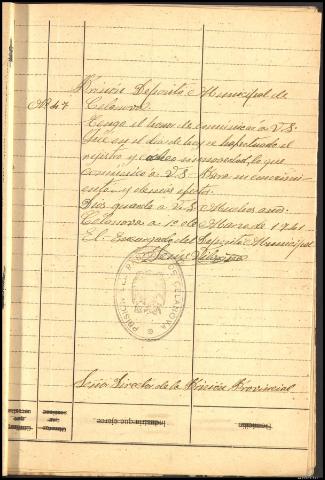 Prisión Deposito Municipal de
Nº 47 Celanova.
Tengo el honor de comunicar a V.S.
Que en el dia de hoy se ha efectuado el
registro y cacheo sin novedad, lo que
comunico a V.S. Para su conocimi
ento y demas efectos.
Dios guarde a V.S. Muchos años.
Celanova a 1º de Marzo de 1941
El Encargado del Deposito Municipal
PRISION DE CELANOVA
Señor Director de la Prisión Provincial
Industria que ejerce